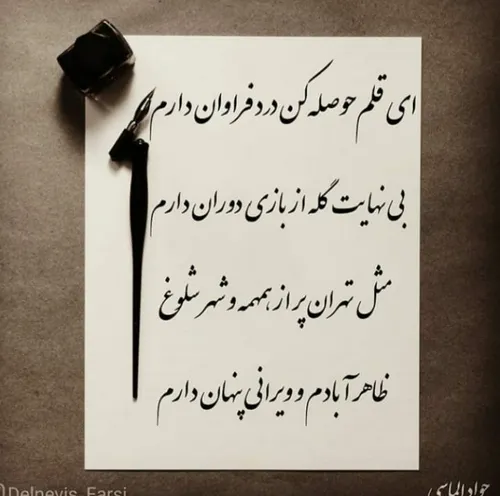 ای قلم حوصله کن درد فراوان دارم
بی نهایت گله از بازی دوران دارم
مثل تهران پر از همهمه و شهر شلوغ
ظاهر آبادم و ویرانی پنهان دارم
جواد الماسی
Delnevis_Farsi